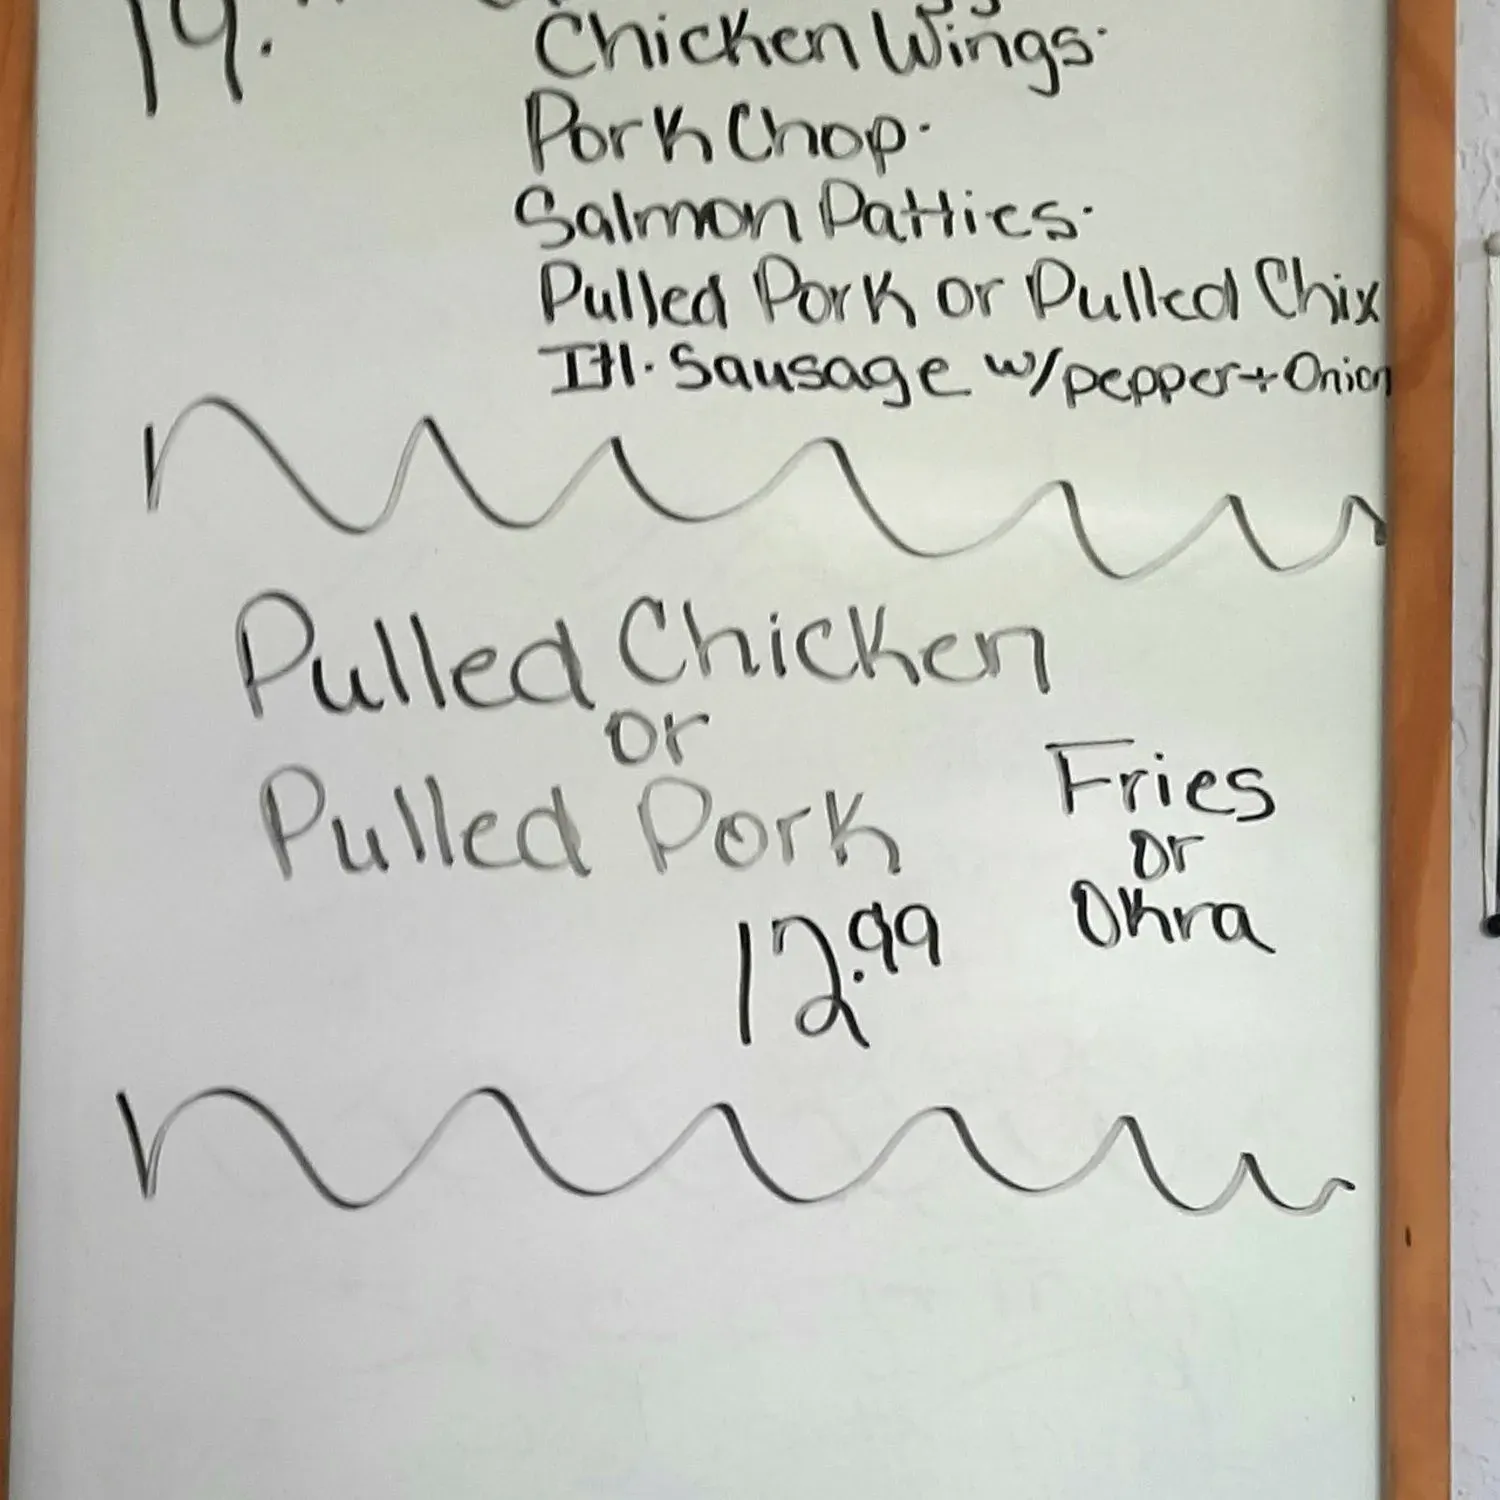 19.
Chicken Wings.
Pork Chop.
Salmon Patties.
Pulled Pork or Pulled Chix
Itl. Sausage w/pepper+Onion
Pulled Chicken
or
Pulled Pork
12.99
Fries
or
Okra